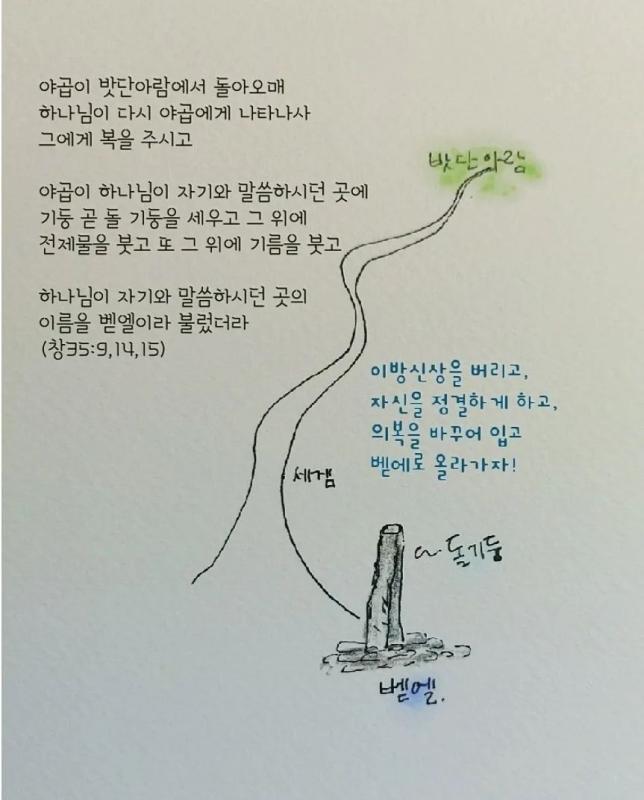 야곱이 밧단아람에서 돌아오매
하나님이 다시 야곱에게 나타나사
그에게 복을 주시고
야곱이 하나님이 자기와 말씀하시던 곳에
기둥 곧 돌 기둥을 세우고 그 위에
전제물을 붓고 또 그 위에 기름을 붓고
하나님이 자기와 말씀하시던 곳의
이름을 벧엘이라 불렀더라
(창35:9,14,15)
밧단아람
이방신상을 버리고,
자신을 정결하게 하고,
의복을 바꾸어 입고
벧에로 올라가자!
세겜
돌기둥
벧엘.